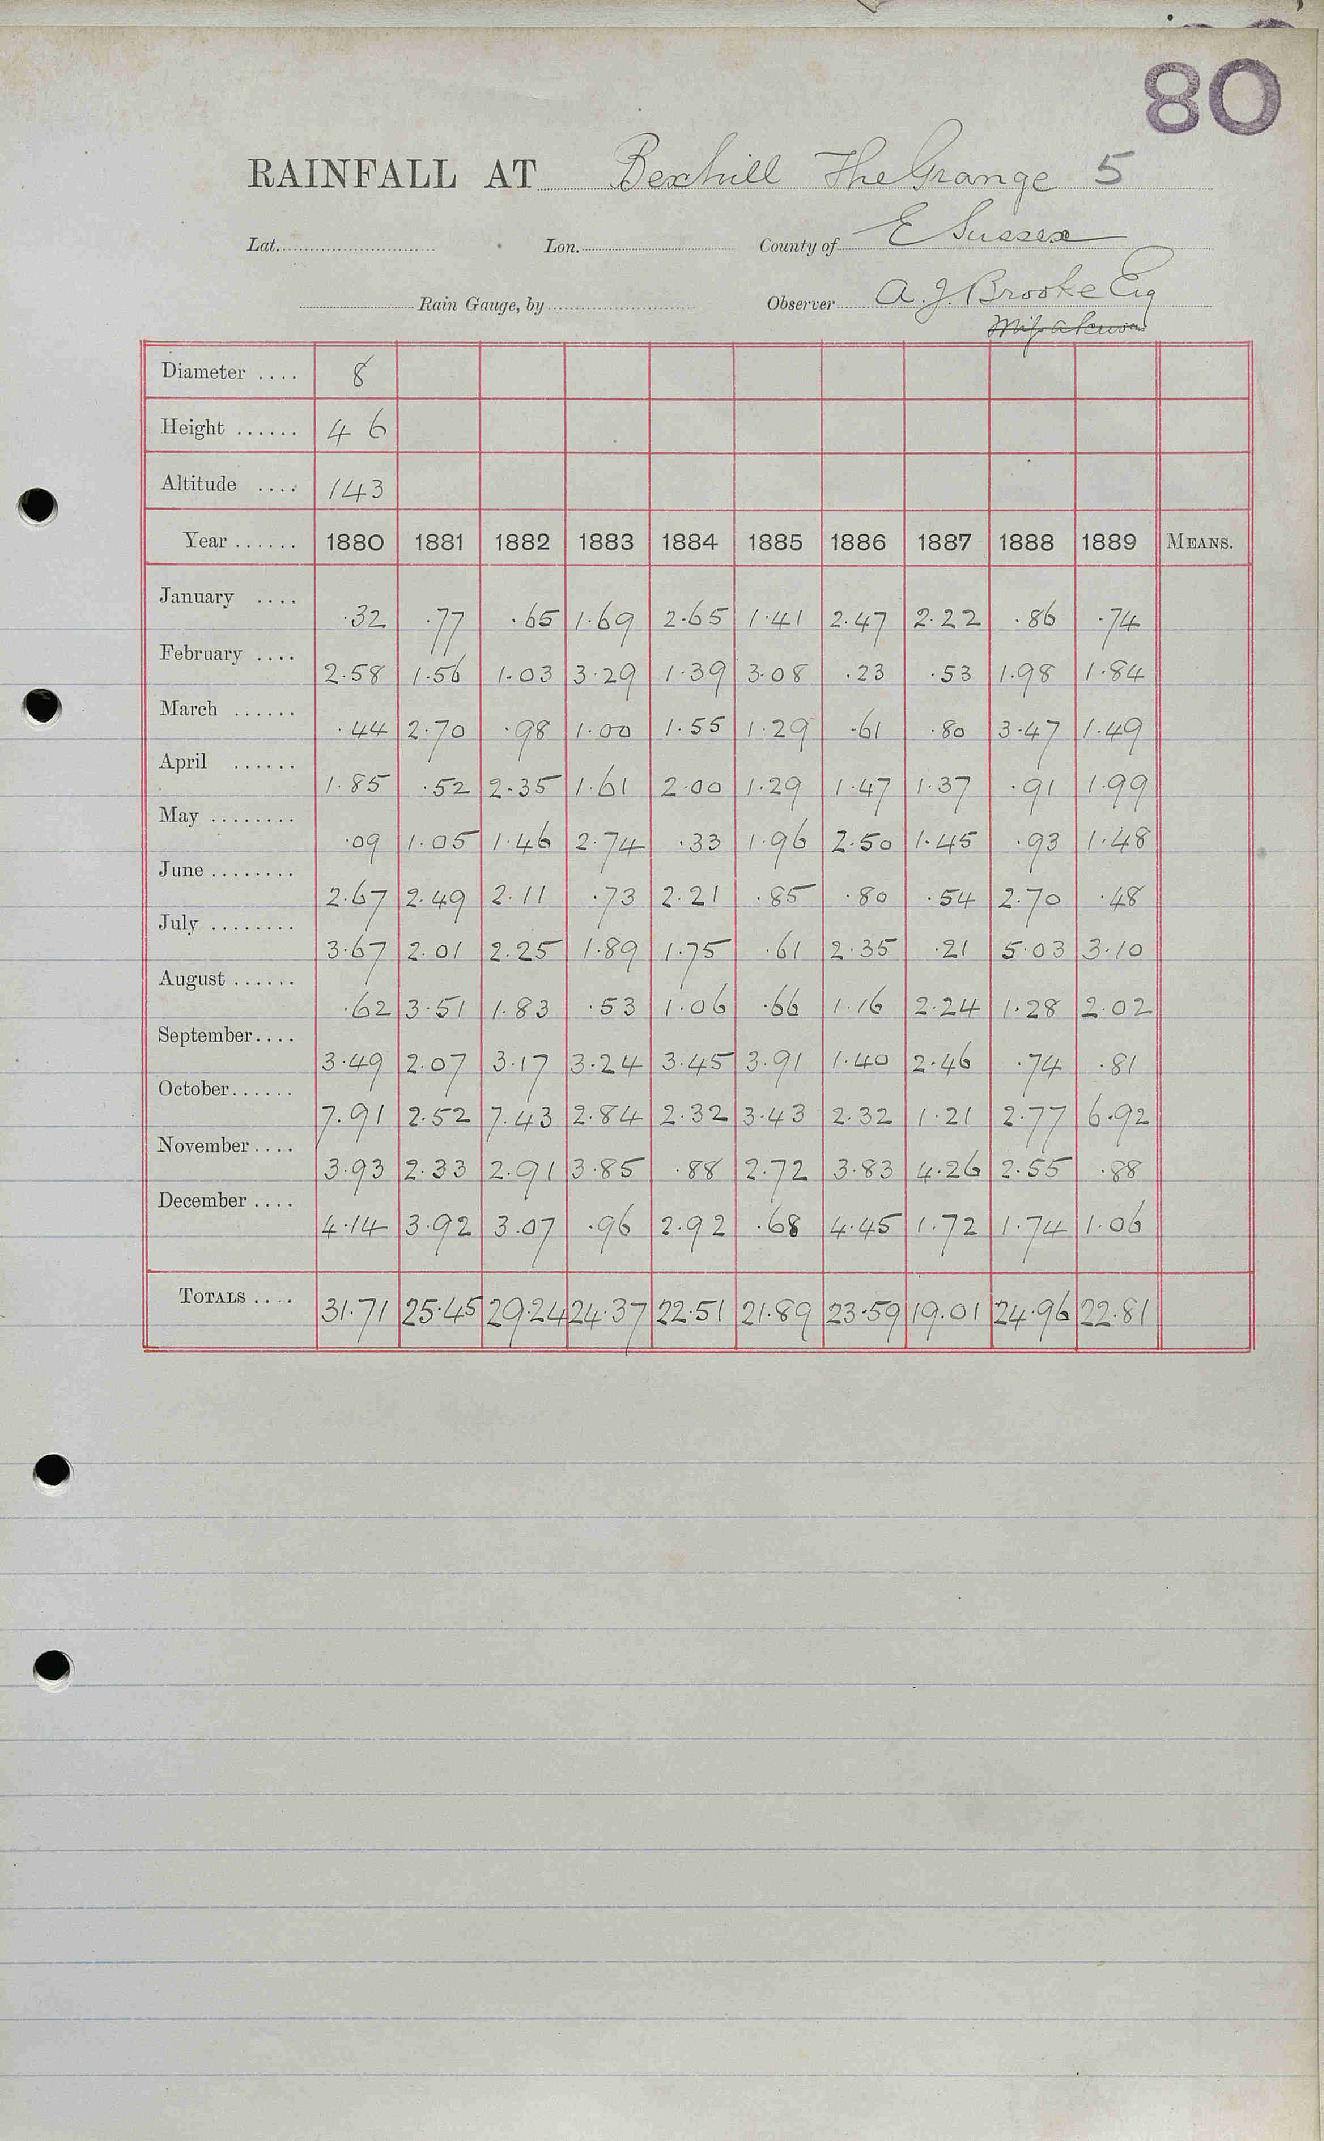 80
RAINFALL AT Bexhill The Grange 5
Lat. Lon. County of E Sussex
Rain Gauge, by Observer A. J. Brooke Esq
Miss
Diameter .... 8
Height ...... 4 6
Altitude .... 143
Year ...... 1880 1881 1882 1883 1884 1885 1886 1887 1888 1889 MEANS.
January .... .32 .77 .65 1.69 2.65 1.41 2.47 2.22 .86 .74
February .... 2.58 1.56 1.03 3.29 1.39 3.08 .23 .53 1.98 1.84
March ...... .44 2.70 .98 1.00 1.55 1.29 .61 .80 3.47 1.49
April ...... 1.85 .52 2.35 1.61 2.00 1.29 1.47 1.37 .91 1.99
May ........ .09 1.05 1.46 2.74 .33 1.96 2.50 1.45 .93 1.48
June ........ 2.67 2.49 2.11 .73 2.21 .85 .80 .54 2.70 .48
July ........ 3.67 2.01 2.25 1.89 1.75 .61 2.35 .21 5.03 3.10
August ...... .62 3.51 1.83 .53 1.06 .66 1.16 2.24 1.28 2.02
September.... 3.49 2.07 3.17 3.24 3.45 3.91 1.40 2.46 .74 .81
October...... 7.91 2.52 7.43 2.84 2.32 3.43 2.32 1.21 2.77 6.92
November .... 3.93 2.33 2.91 3.85 .88 2.72 3.83 4.26 2.55 .88
December .... 4.14 3.92 3.07 .96 2.92 .68 4.45 1.72 1.74 1.06
TOTALS .... 31.71 25.45 29.24 24.37 22.51 21.89 23.59 19.01 24.96 22.81